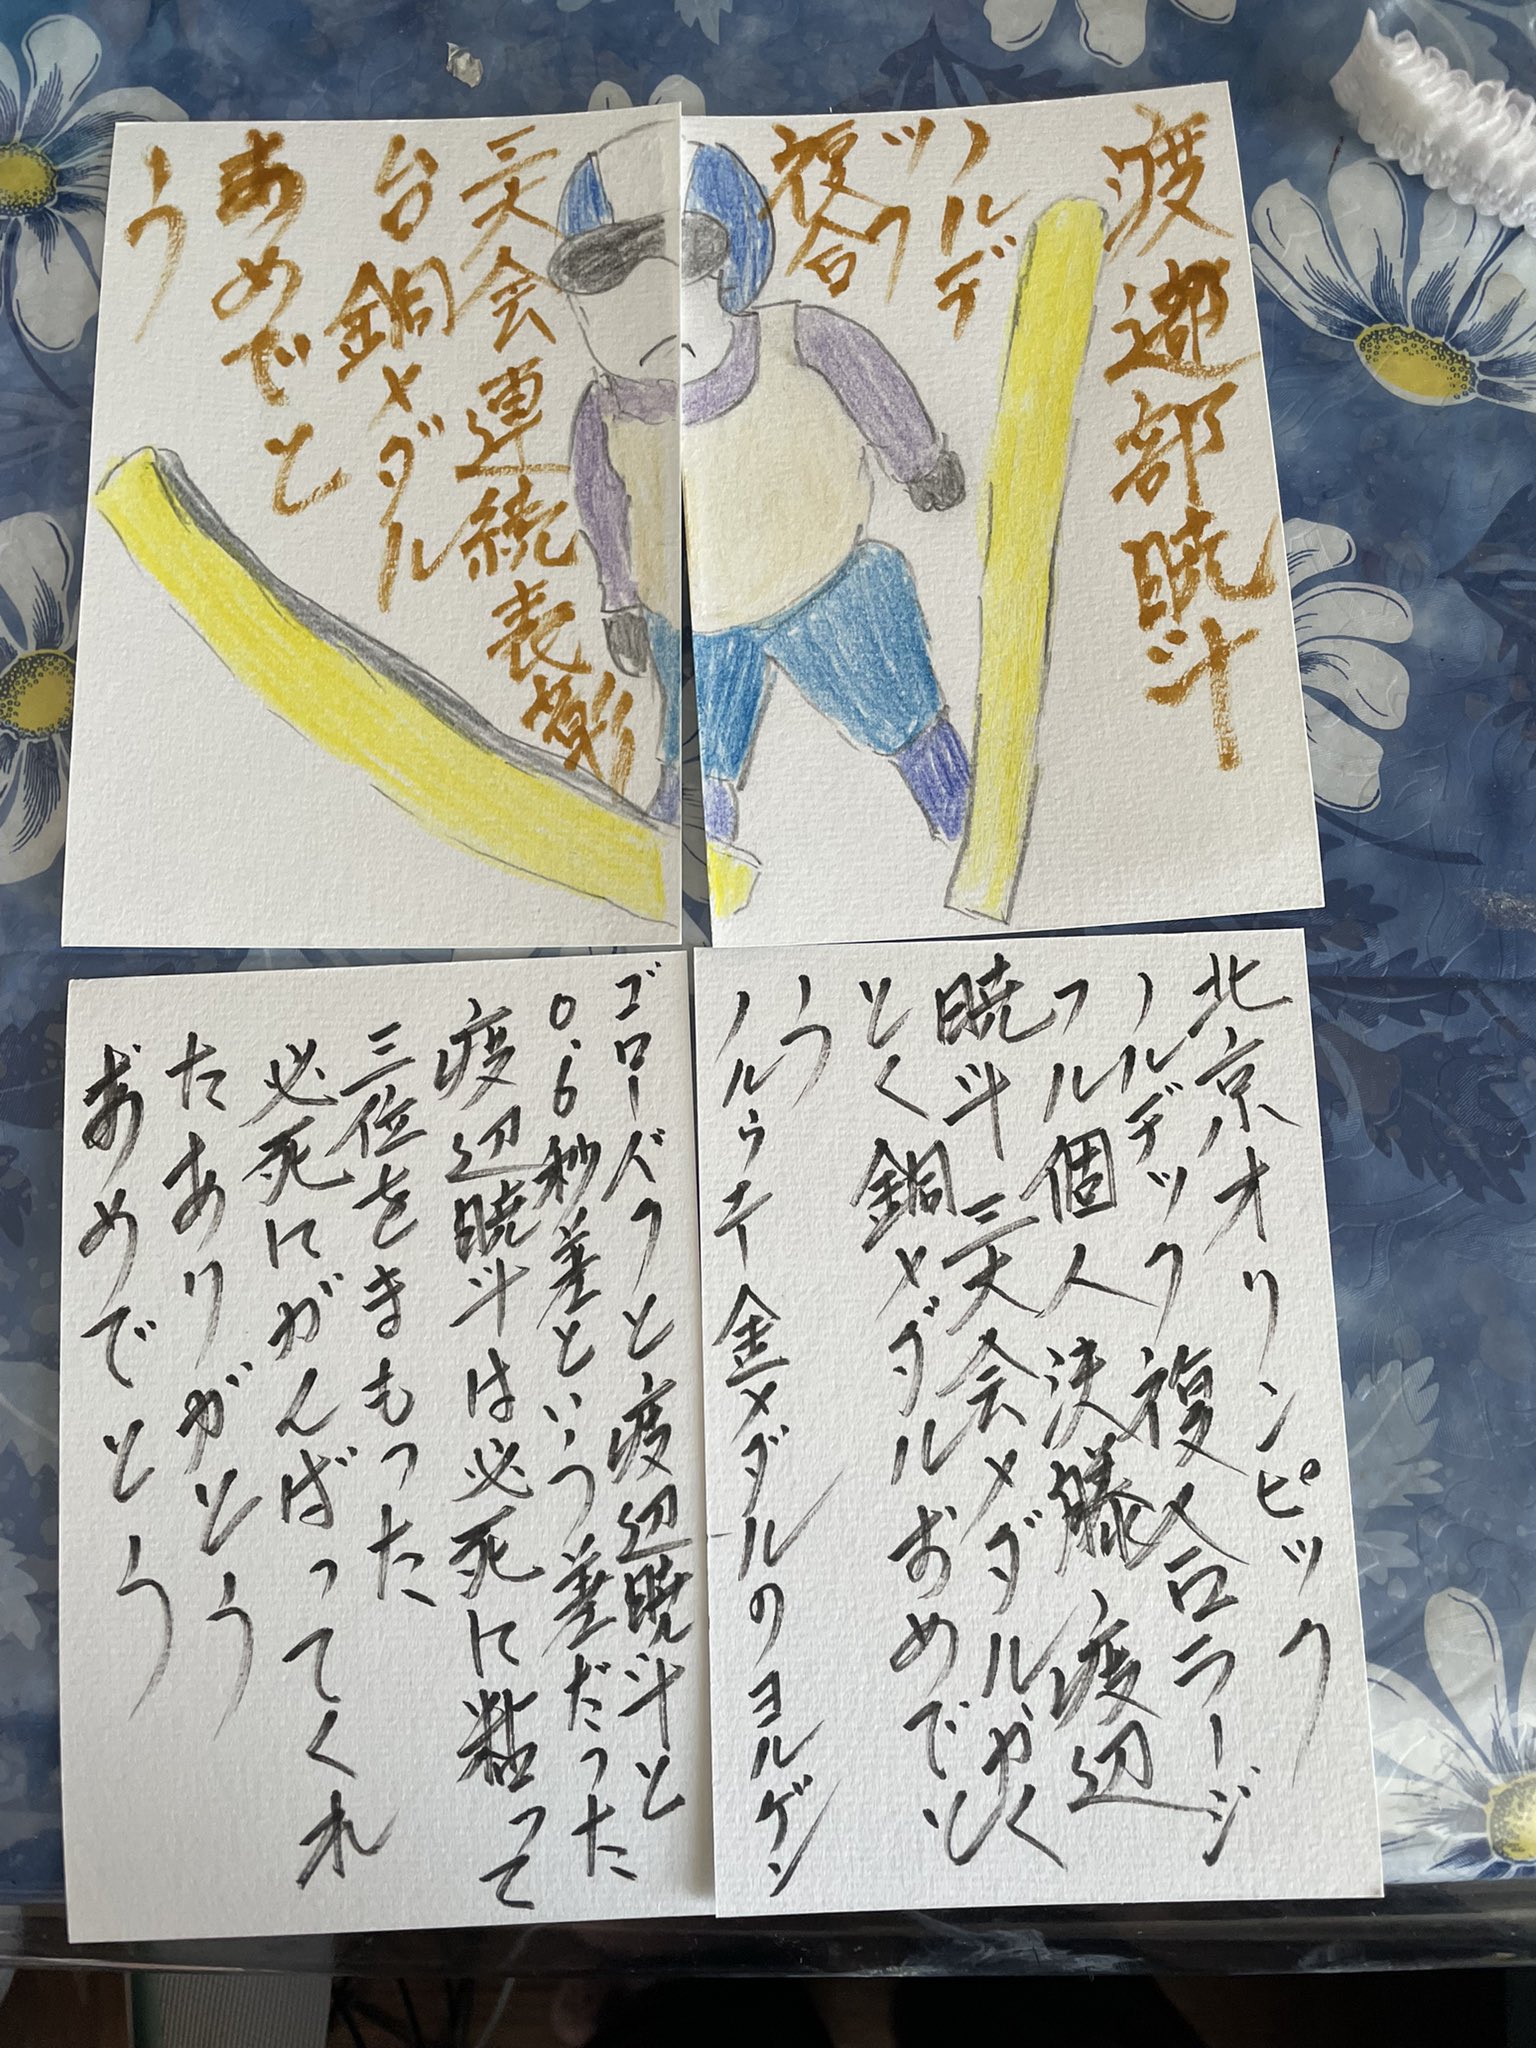 渡邉部暁斗
ノルディ
ック
複合
三大会連続表彰
台銅メダル
おめでと
う
北京オリンピック
ノルディック複合ラージ
フル個人決勝 渡辺
暁斗 三大会メダルかく
とく銅メダルおめでと
う
ノルウェー金メダルのヨルゲン
ゴローバクと渡辺暁斗と
0.6秒差という差だった
渡辺暁斗は必死に粘って
三位をまもった
必死にがんばってくれ
たありがとう
おめでとう